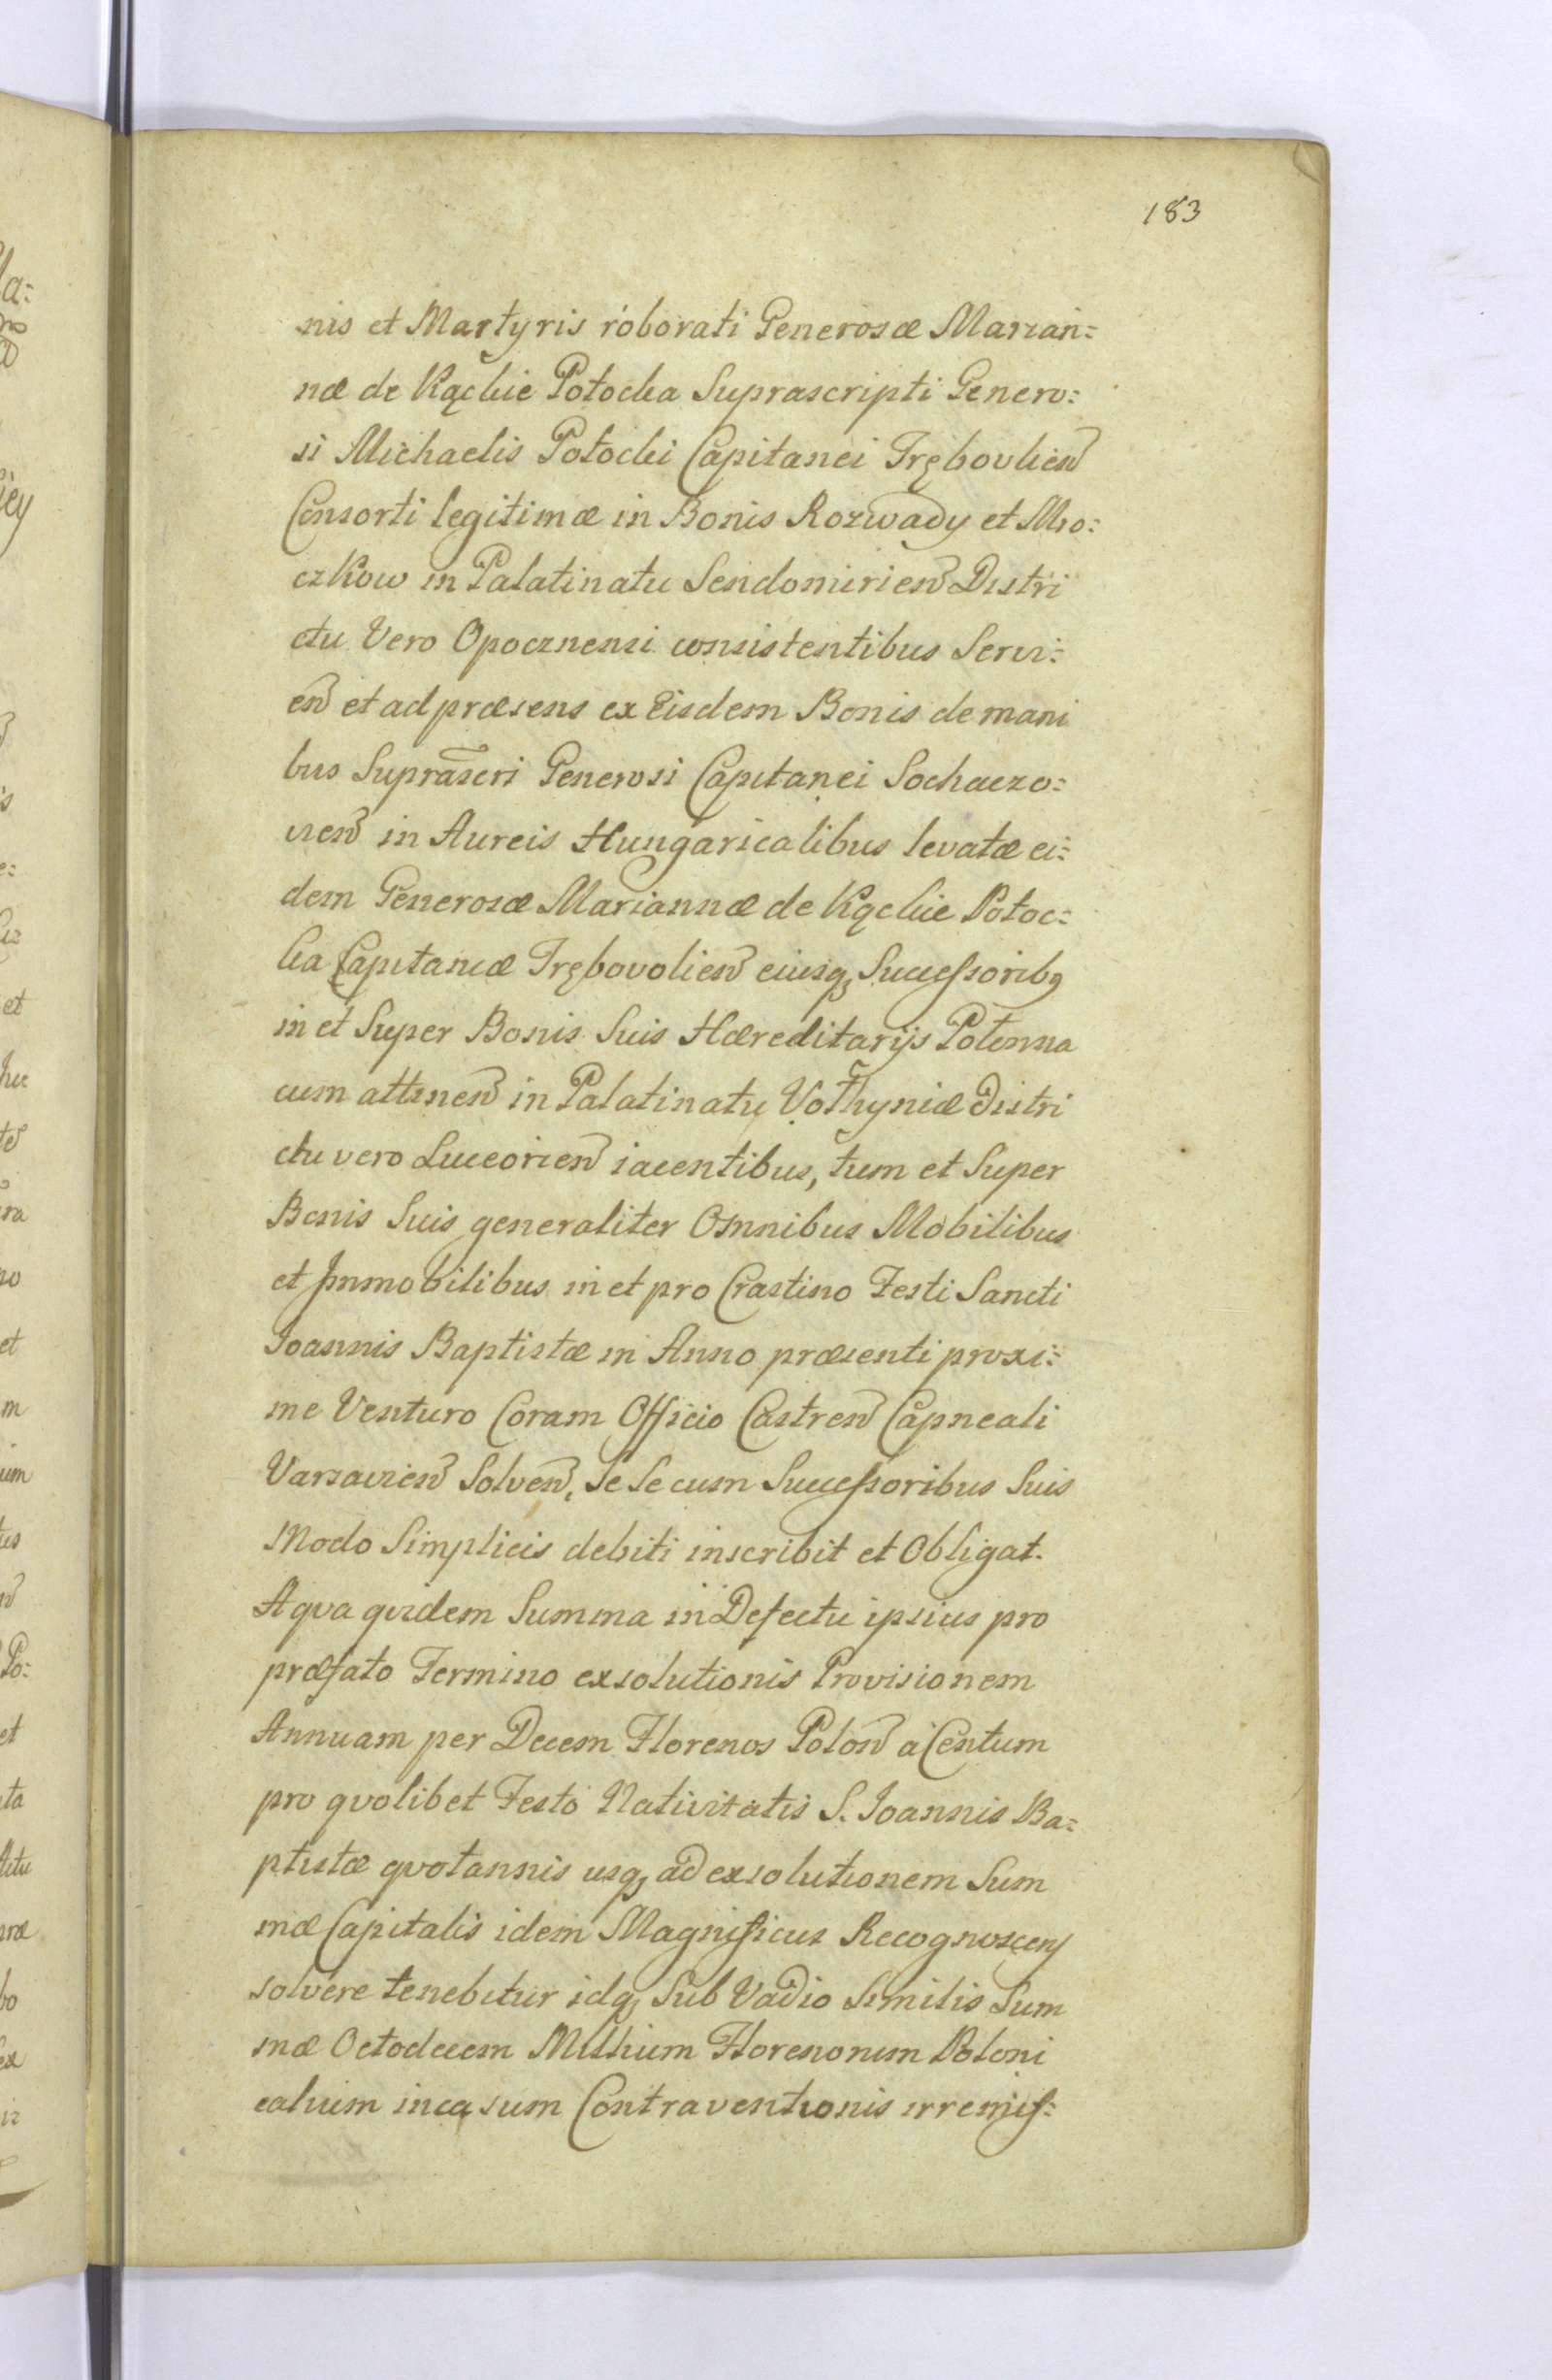 183
nis et Martyris roborati Generosæ Marian:
næ de Kąckie Potocka Suprascripti Genero:
si Michaelis Potocki Capitanei Tręboulień
Consorti legitimæ in Bonis Rozwady et Mro:
czkow in Palatinatu Sendomirień Distri
ctu Vero Opocznensi consistentibus Servi:
eń et ad præsens ex Eisdem Bonis de mani
bus Suprascri Generosi Capitanei Sochaczo:
vień in Aureis Hungaricalibus levatæ ei:
dem Generosæ Mariannæ de Kąckie Potoc:
ka Capitaneæ Trębovolień eiusq3 Successoribꝰ
in et Super Bonis Suis Hæreditarijs
cum attineń in Palatinatu Volhyniæ Distri
ctu vero Luceorień iacentibus, tum et Super
Bonis Suis generaliter Omnibus Mobilibus
et Immobilibus in et pro Crastino Festi Sancti
Joannis Baptistæ in Anno præsenti proxi:
me Venturo Coram Officio Castreń Capneali
Varsavień Solveń, Se Se cum Successoribus Suis
Modo Simplicis debiti inscribit et Obligat.
A qva qvidem Summa in Defectu ipsius pro
præfato Termino exsolutionis Provisionem
Annuam per Decem Florenos Poloń à Centum
pro qvolibet Festo Nativitatis S. Joannis Ba:
ptistæ qvotannis usq3 ad exsolutionem Sum
mæ Capitalis idem Magnificus Recognoscens
solvere tenebitur idq3 Sub Vadio Similis Sum
mæ Octodecem Millium Florenorum Poloni
calium in casum Contraventionis irremis: